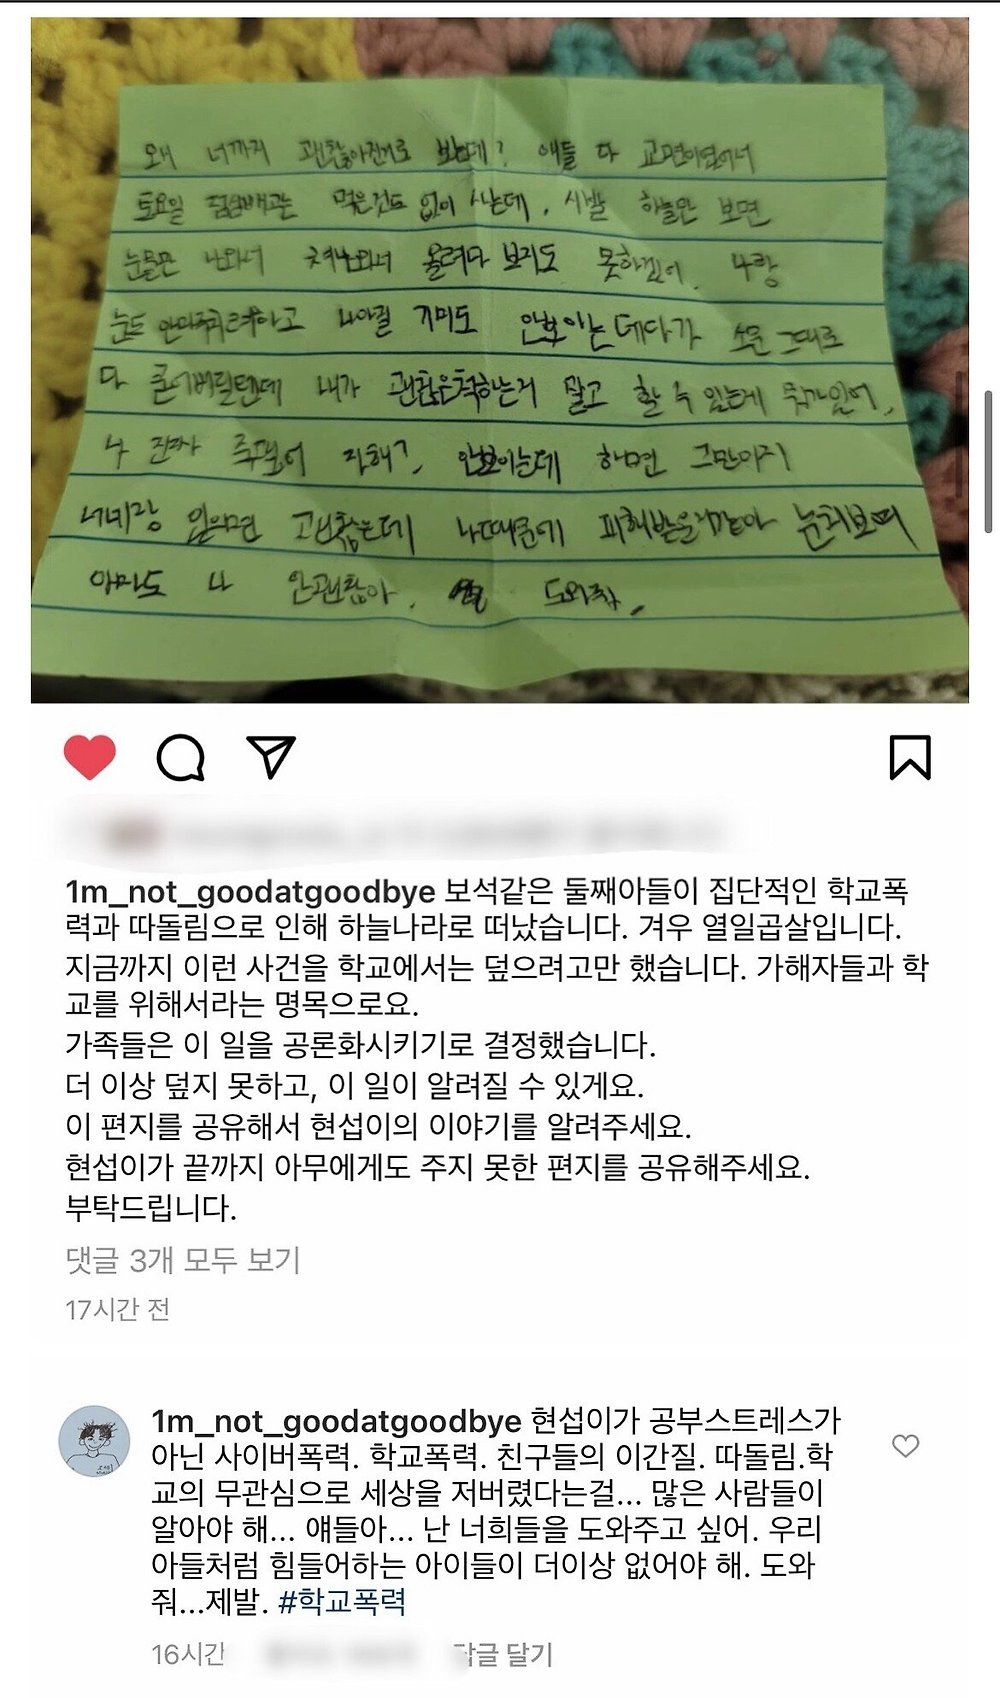 왜 너까지 괜찮아진거로 보는데? 애들 다 교면이였어서
토요일 점심빼고는 먹은것도 없이 사는데, 시발 하늘만 보면
눈물만 나와서 쳐나와서 올려다 보지도 못하겠어. 나랑
눈도 안마주치려하고 나아질 기미도 안보이는데다가 소문 그대로
다 믿어버릴텐데 내가 괜찮은척하는거 말고 할 수 있는게 뭐가있어,
나 진짜 죽을거 자해?, 안보이는데 하면 그만이지
너네랑 있으면 괜찮은데 나때문에 피해받을거같아 눈치보여
아마도 나 안괜찮아. 도와줘,
1m_not_goodatgoodbye 보석같은 둘째아들이 집단적인 학교폭
력과 따돌림으로 인해 하늘나라로 떠났습니다. 겨우 열일곱살입니다.
지금까지 이런 사건을 학교에서는 덮으려고만 했습니다. 가해자들과 학
교를 위해서라는 명목으로요.
가족들은 이 일을 공론화시키기로 결정했습니다.
더 이상 덮지 못하고, 이 일이 알려질 수 있게요.
이 편지를 공유해서 현섭이의 이야기를 알려주세요.
현섭이가 끝까지 아무에게도 주지 못한 편지를 공유해주세요.
부탁드립니다.
댓글 3개 모두 보기
17시간 전
1m_not_goodatgoodbye 현섭이가 공부스트레스가
아닌 사이버폭력. 학교폭력. 친구들의 이간질. 따돌림.학
교의 무관심으로 세상을 저버렸다는걸... 많은 사람들이
알아야 해... 얘들아... 난 너희들을 도와주고 싶어. 우리
아들처럼 힘들어하는 아이들이 더이상 없어야 해. 도와
줘...제발. #학교폭력
16시간 답글 달기